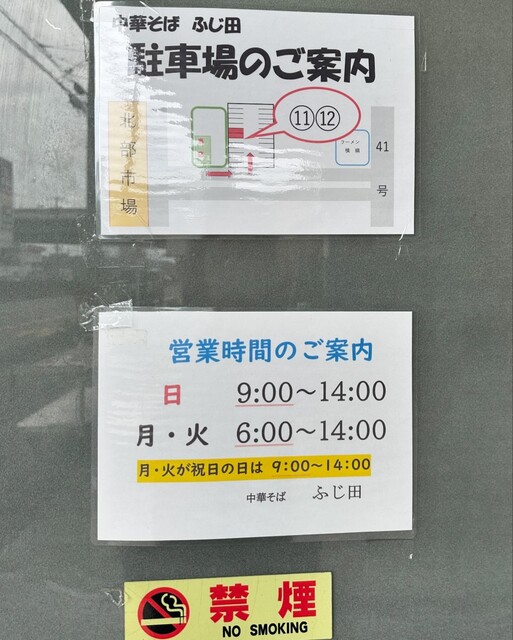 中華そば ふじ田
駐車場のご案内
北部市場
⑪⑫
ラーメン
41号
営業時間のご案内
日 9:00〜14:00
月・火 6:00〜14:00
月・火が祝日の日は 9:00〜14:00
中華そば ふじ田
禁煙
NO SMOKING